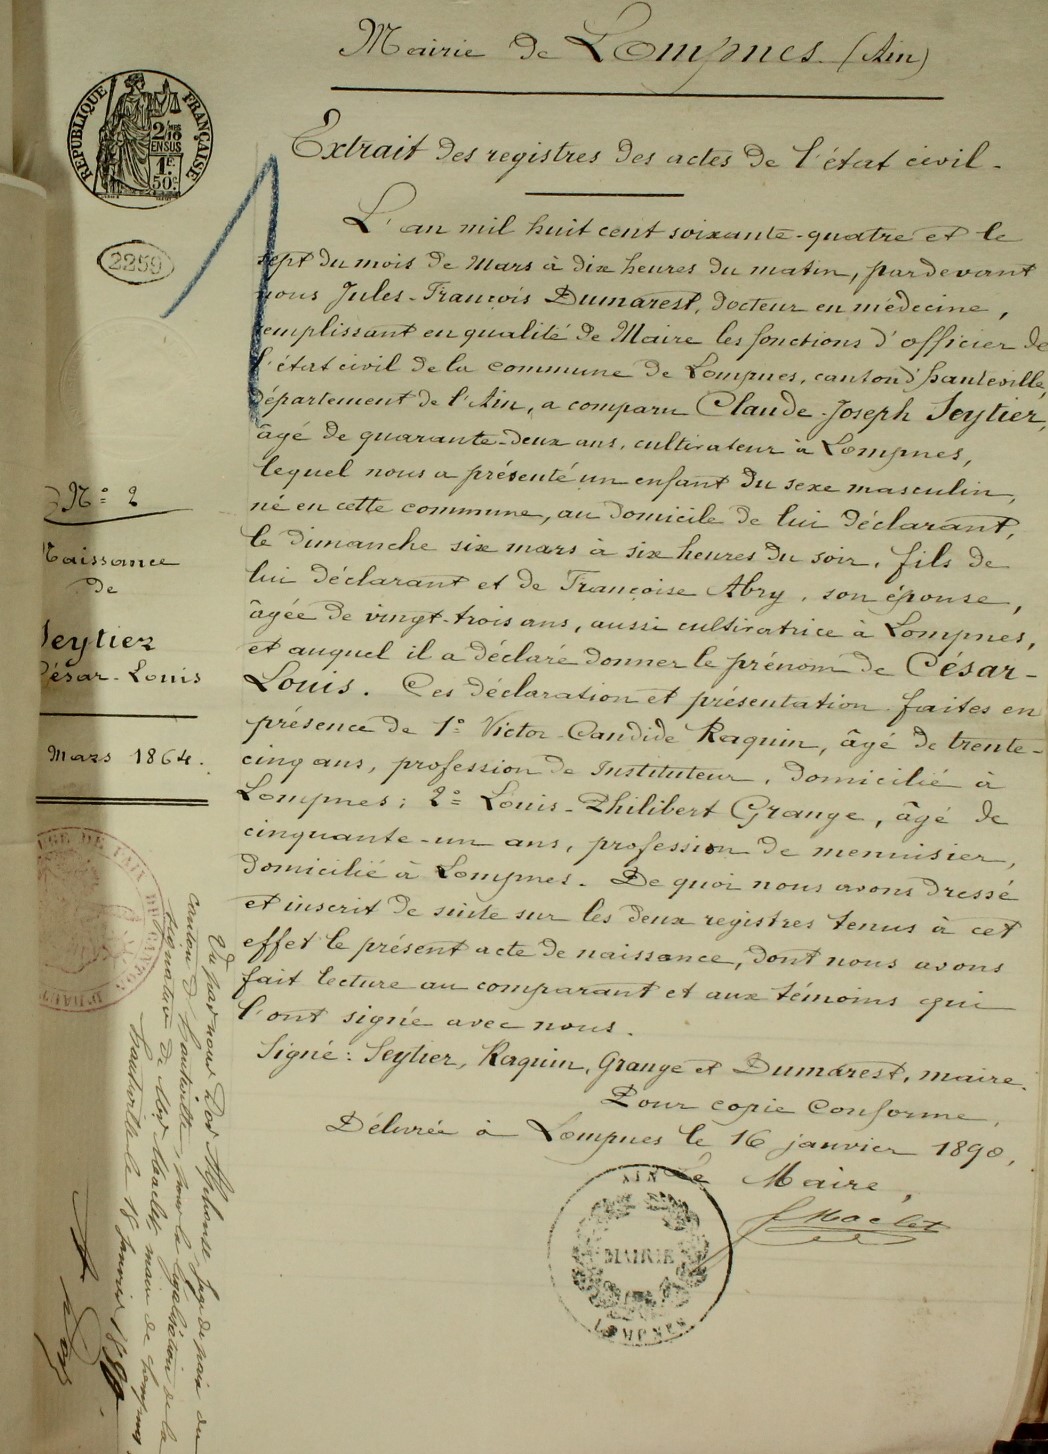 Mairie de Lompnes (Ain)
RÉPUBLIQUE FRANÇAISE
2/10
EN SUS
1F.
50c.
2259
Extrait des registres des actes de l'état civil.
L'an mil huit cent soixante-quatre et le
sept du mois de Mars à dix heures du matin, pardevant
nous Jules-François Dumarest, docteur en médecine,
remplissant en qualité de Maire les fonctions d'officier de
l'état civil de la commune de Lompnes, canton d'hauteville,
département de l'Ain, a comparu Claude-Joseph Seytier,
âgé de quarante-deux ans, cultivateur à Lompnes,
lequel nous a présenté un enfant du sexe masculin,
né en cette commune, au domicile de lui déclarant,
le dimanche six mars à six heures du soir, fils de
lui déclarant et de Françoise Abry, son épouse,
âgée de vingt-trois ans, aussi cultivatrice à Lompnes,
et auquel il a déclaré donner le prénom de César-
Louis. Ces déclaration et présentation faites en
présence de 1° Victor-Candide Raquin, âgé de trente-
cinq ans, profession de Instituteur, domicilié à
Lompnes; 2° Louis-Philibert Grange, âgé de
cinquante-un ans, profession de menuisier,
domicilié à Lompnes. De quoi nous avons dressé
et inscrit de suite sur les deux registres tenus à cet
effet le présent acte de naissance, dont nous avons
fait lecture au comparant et aux témoins qui
l'ont signé avec nous.
Signé: Seytier, Raquin, Grange et Dumarest, maire.
Pour copie conforme,
Délivrée à Lompnes le 16 janvier 1890,
Le Maire,
Maclet
AIN
MAIRIE
LOMPNES
N° 2
Naissance
de
Seytier
César-Louis
Mars 1864.
DE PAIX DU CANTON
D'HAUT
Vu par nous Alphonse Juge de paix du
canton d'hauteville, pour la légalisation de la
signature de Mr Maclet maire de Lompnes
hauteville le 18 Janvier 1890.